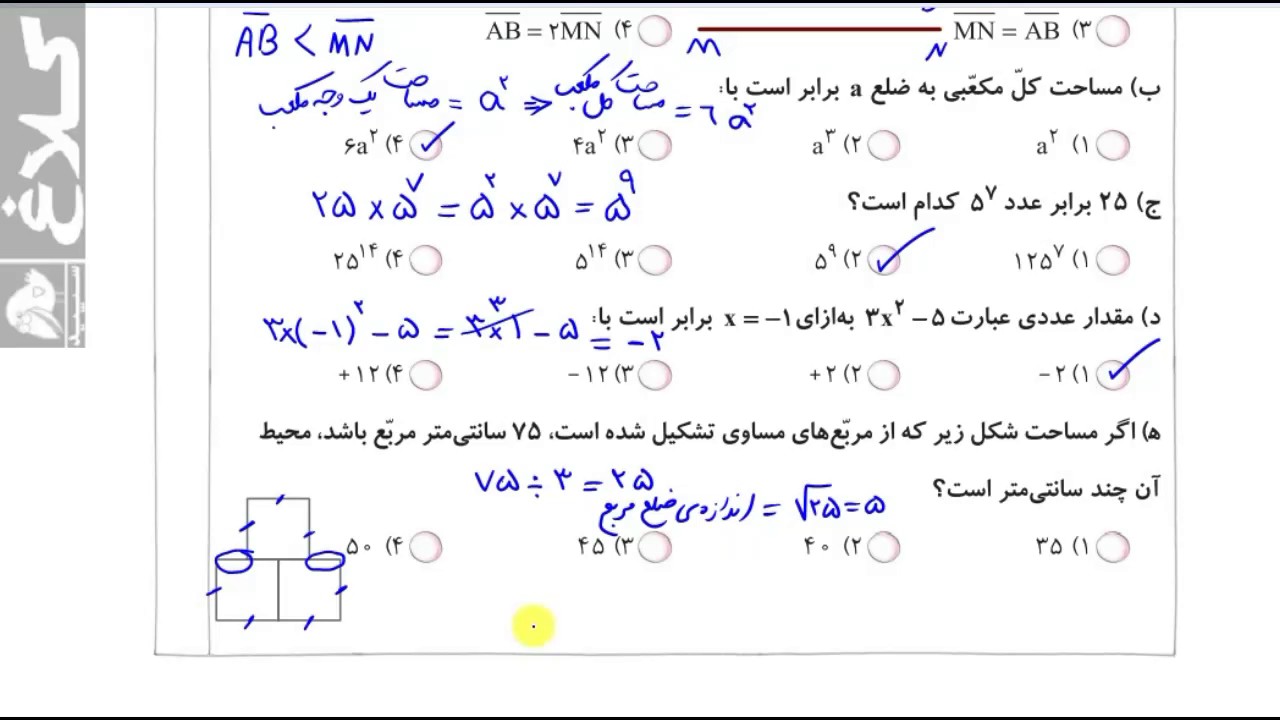 ۳) MN = AB
۴) AB = ۲MN
M N
AB < MN
ب) مساحت کلّ مکعّبی به ضلع a برابر است با:
مساحت یک وجه مکعب = a² ⇒ مساحت کل مکعب = ۶a²
۱) a²
۲) a³
۳) ۴a²
۴) ۶a²
ج) ۲۵ برابر عدد ۵⁷ کدام است؟
۲۵ × ۵⁷ = ۵² × ۵⁷ = ۵⁹
۱) ۱۲۵⁷
۲) ۵⁹
۳) ۵¹⁴
۴) ۲۵¹⁴
د) مقدار عددی عبارت ۳x² − ۵ به‌ازای x = −۱ برابر است با:
۳×(−۱)² − ۵ = ۳×۱ − ۵ = −۲
۳
۱) −۲
۲) +۲
۳) −۱۲
۴) +۱۲
ه) اگر مساحت شکل زیر که از مربّع‌های مساوی تشکیل شده است، ۷۵ سانتی‌متر مربّع باشد، محیط
آن چند سانتی‌متر است؟
۷۵ ÷ ۳ = ۲۵
اندازه‌ی ضلع مربع = √۲۵ = ۵
۱) ۳۵
۲) ۴۰
۳) ۴۵
۴) ۵۰
کلاغ
سپید